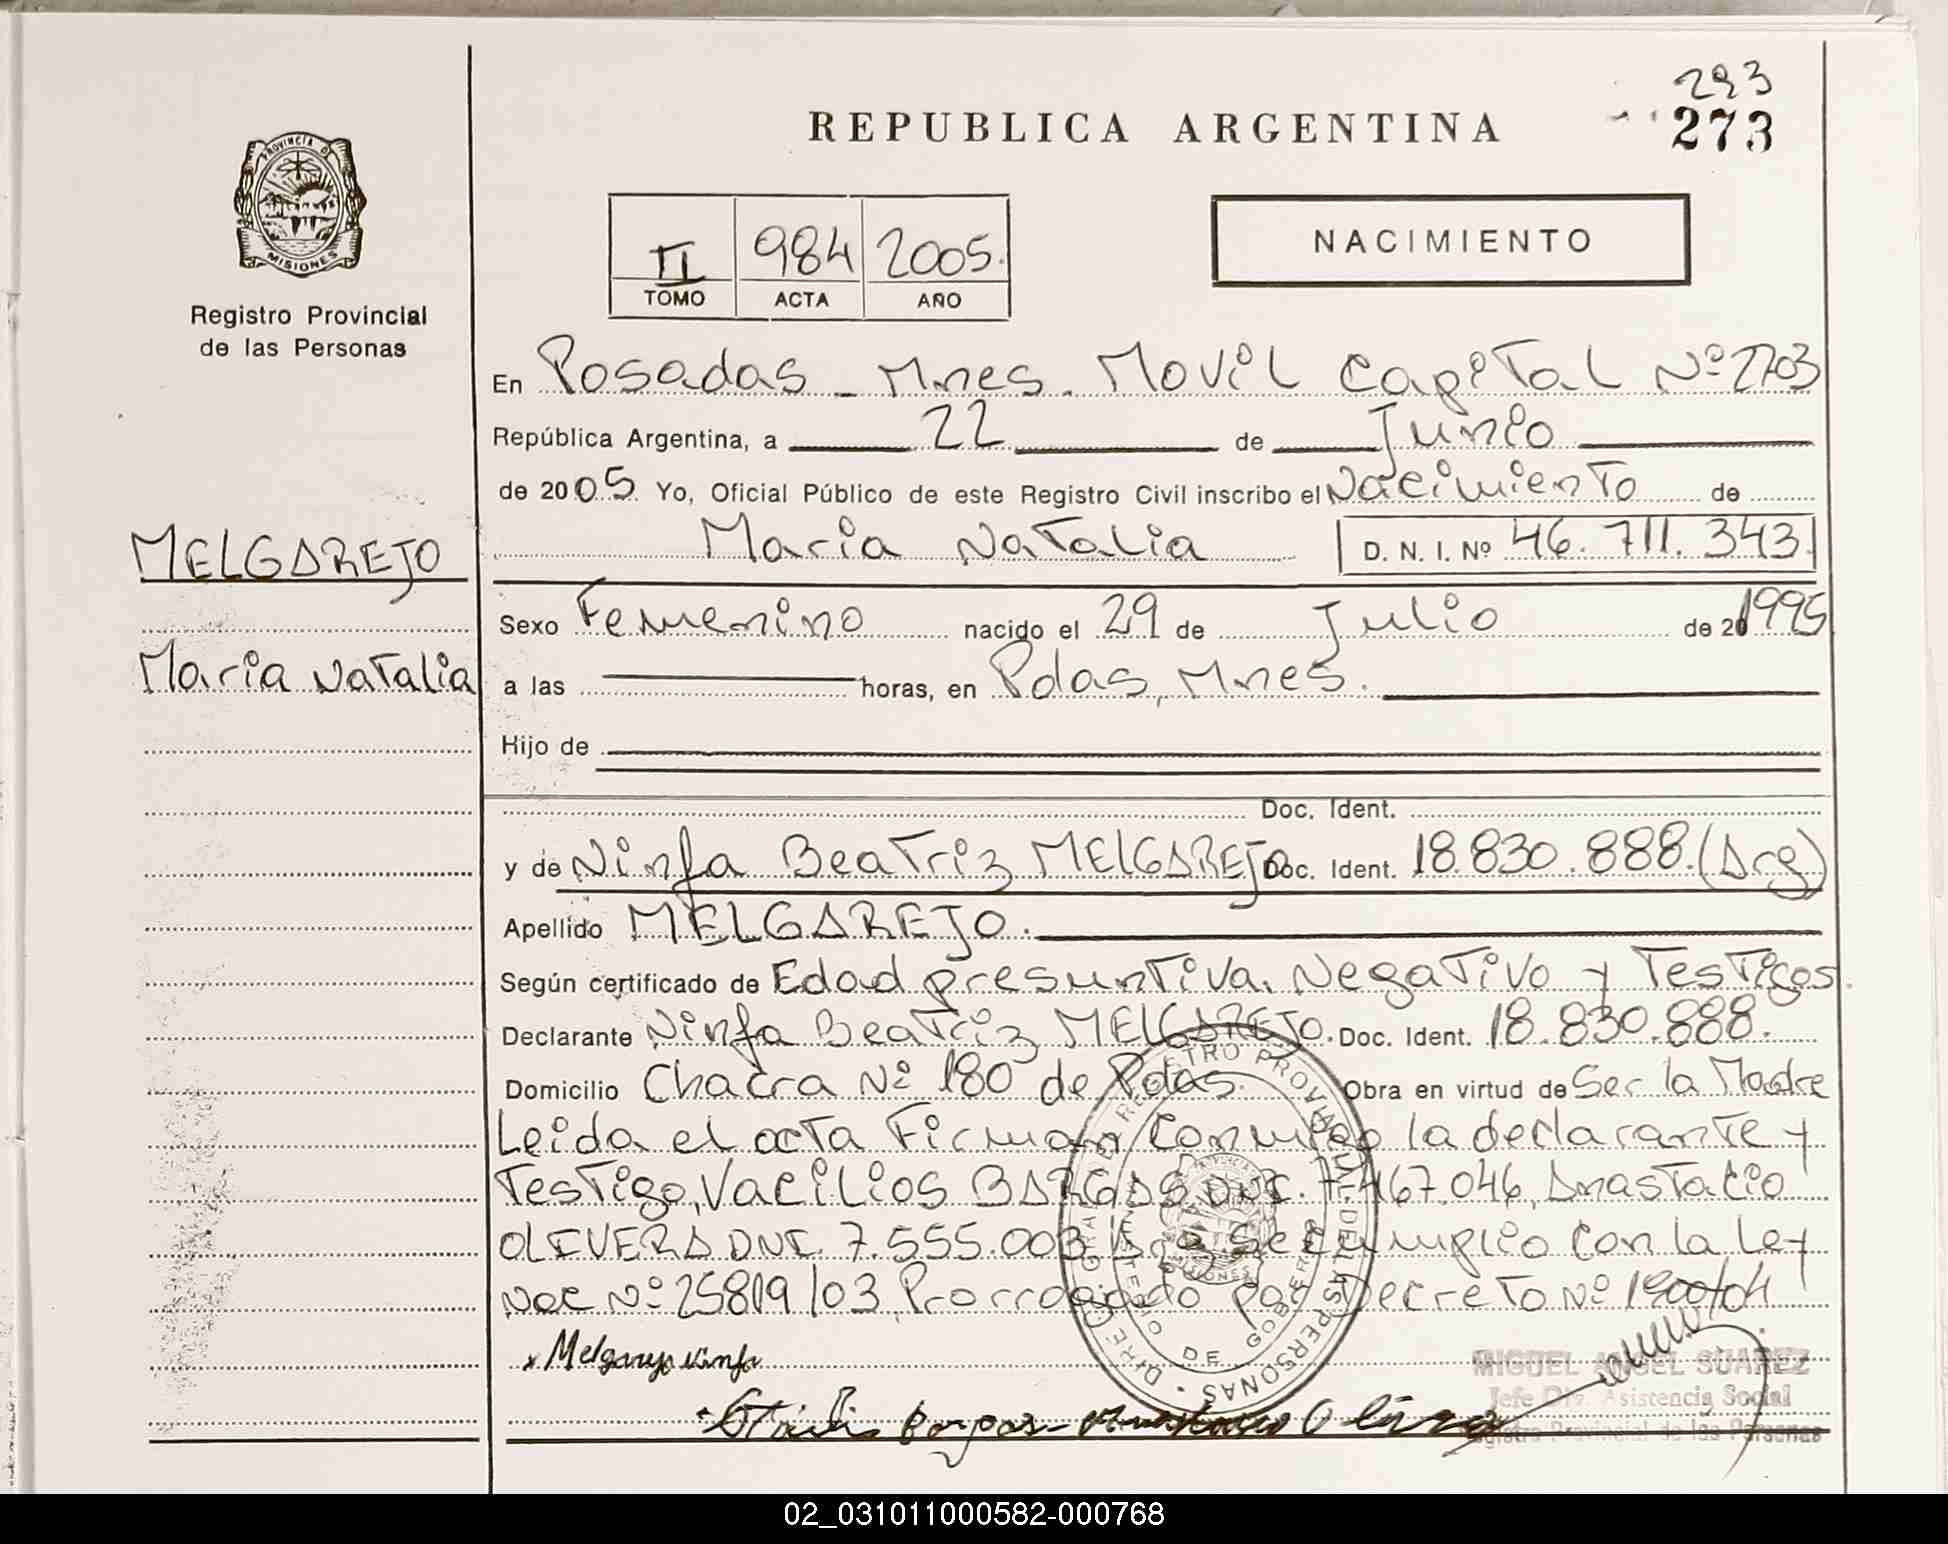 293
REPUBLICA ARGENTINA 273
PROVINCIA DE
MISIONES
Registro Provincial
de las Personas
II 984 2005.
TOMO ACTA AÑO
NACIMIENTO
En Posadas - Mnes. Movil Capital Nº 2703
República Argentina, a 22 de Junio
de 2005. Yo, Oficial Público de este Registro Civil inscribo el Nacimiento de
Maria Natalia D. N. I. Nº 46.711.343
MELGAREJO
Maria Natalia
Sexo Femenino nacido el 29 de Julio de 20 1995
a las horas, en Pdas, Mnes.
Hijo de
Doc. Ident.
y de Ninfa Beatriz MELGAREJO Doc. Ident. 18.830.888.(Arg)
Apellido MELGAREJO.
Según certificado de Edad presuntiva, Negativo y Testigos.
Declarante Ninfa Beatriz MELGAREJO. Doc. Ident. 18.830.888.
Domicilio Chacra Nº 180 de Pdas. Obra en virtud de Ser la Madre
Leida el acta Firman conmigo la declarante y
Testigo, Vacilios BARGAS DNI. 7.467.046, Anastacio
OLIVERA DNI. 7.555.003 Se cumplio con la Ley
Nac Nº 25819/03, Prorrogado por Decreto Nº 1900/04
x Melgarejo Ninfa
MIGUEL ANGEL SUAREZ
Jefe Div. Asistencia Social
Registro Provincial de las Personas
02_031011000582-000768